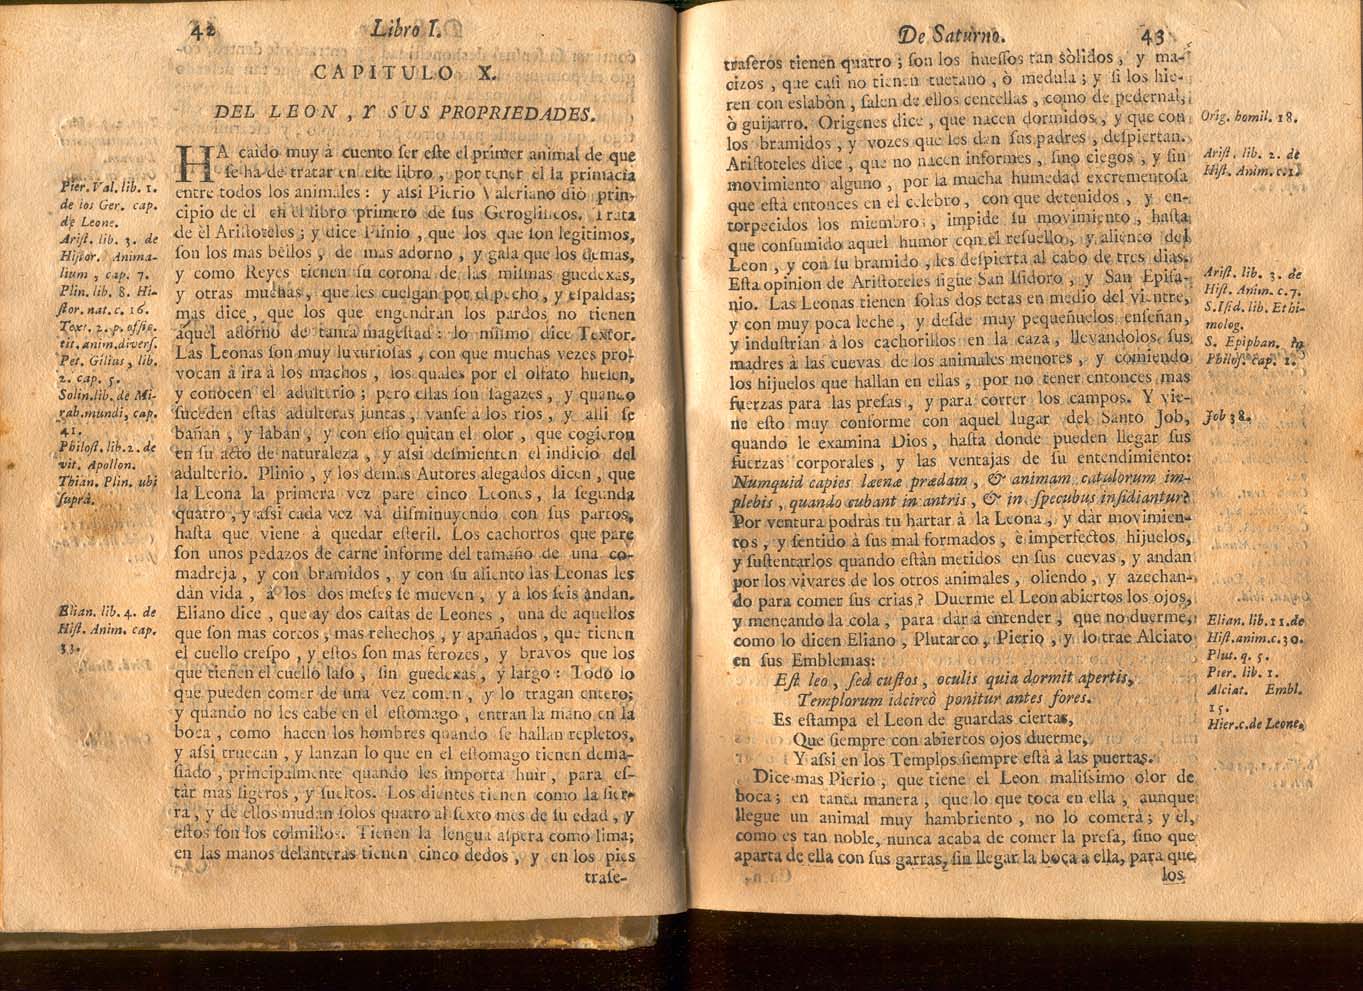 42 Libro I.
CAPITULO X.
DEL LEON, Y SUS PROPRIEDADES.
HA caido muy à cuento ser este el primer animal de que
se ha de tratar en este libro, por tener el la primacia
entre todos los animales: y assi Pierio Valeriano diò prin-
cipio de él en el libro primero de sus Geroglificos. Trata
de èl Aristoteles; y dice Plinio, que los que son legitimos,
son los mas bellos, de mas adorno, y gala que los demas,
y como Reyes tienen su corona de las mismas guedexas,
y otras muchas, que les cuelgan por el pecho, y espaldas;
mas dice, que los que engendran los pardos no tienen
aquel adorno de tanta magestad: lo mismo dice Textor.
Las Leonas son muy luxuriosas, con que muchas vezes pro-
vocan à ira à los machos, los quales por el olfato huelen,
y conocen el adulterio; pero ellas son sagazes, y quando
suceden estas adulteras juntas, vanse à los rios, y alli se
bañan, y laban, y con esso quitan el olor, que cogieron
en su acto de naturaleza, y assi desmienten el indicio del
adulterio. Plinio, y los demás Autores alegados dicen, que
la Leona la primera vez pare cinco Leones, la segunda
quatro, y assi cada vez và disminuyendo con sus partos,
hasta que viene à quedar esteril. Los cachorros que pare
son unos pedazos de carne informe del tamaño de una co-
madreja, y con bramidos, y con su aliento las Leonas les
dàn vida, à los dos meses se mueven, y à los seis andan.
Eliano dice, que ay dos castas de Leones, una de aquellos
que son mas cortos, mas rehechos, y apañados, que tienen
el cuello crespo, y estos son mas ferozes, y bravos que los
que tienen el cuello laso, sin guedexas, y largo: Todo lo
que pueden comer de una vez comen, y lo tragan entero;
y quando no les cabe en el estomago, entran la mano en la
boca, como hacen los hombres quando se hallan repletos,
y assi truecan, y lanzan lo que en el estomago tienen dema-
siado, principalmente quando les importa huir, para es-
tar mas ligeros, y sueltos. Los dientes tienen como la sier-
ra, y de ellos mudan solos quatro al sexto mes de su edad, y
estos son los colmillos. Tienen la lengua aspera como lima;
en las manos delanteras tienen cinco dedos, y en los pies
trase-
Pier. Val. lib. 1.
de los Ger. cap.
de Leone.
Arist. lib. 3. de
Histor. Anima-
lium, cap. 7.
Plin. lib. 8. Hi-
stor. nat. c. 16.
Text. 2. p. offic.
tit. anim. divers.
Pet. Gilius, lib.
2. cap. 5.
Solin. lib. de Mi-
rab. mundi, cap.
41.
Philost. lib. 2. de
vit. Apollon.
Thian. Plin. ubi
suprà.
Elian. lib. 4. de
Hist. Anim. cap.
33.
De Saturno. 43
traseros tienen quatro; son los huessos tan sòlidos, y ma-
cizos, que casi no tienen tuetano, ò medula; y si los hie-
ren con eslabòn, salen de ellos centellas, como de pedernal,
ò guijarro. Origenes dice, que nacen dormidos, y que con
los bramidos, y vozes que les dan sus padres, despiertan.
Aristoteles dice, que no nacen informes, sino ciegos, y sin
movimiento alguno, por la mucha humedad excrementosa
que està entonces en el celebro, con que detenidos, y en-
torpecidos los miembros, impide su movimiento, hasta
que consumido aquel humor con el resuello, y aliento del
Leon, y con su bramido, les despierta al cabo de tres dias.
Esta opinion de Aristoteles sigue San Isidoro, y San Epifa-
nio. Las Leonas tienen solas dos tetas en medio del vientre,
y con muy poca leche, y desde muy pequeñuelos enseñan,
y industrian à los cachorillos en la caza, llevandolos sus
madres à las cuevas de los animales menores, y comiendo
los hijuelos que hallan en ellas, por no tener entonces mas
fuerzas para las presas, y para correr los campos. Y vie-
ne esto muy conforme con aquel lugar del Santo Job,
quando le examina Dios, hasta donde pueden llegar sus
fuerzas corporales, y las ventajas de su entendimiento:
Numquid capies leænæ prædam, & animam catulorum im-
plebis, quando cubant in antris, & in specubus insidiantur?
Por ventura podràs tu hartar à la Leona, y dàr movimien-
tos, y sentido à sus mal formados, è imperfectos hijuelos,
y sustentarlos quando estàn metidos en sus cuevas, y andan
por los vivares de los otros animales, oliendo, y azechan-
do para comer sus crias? Duerme el Leon abiertos los ojos,
y meneando la cola, para dàr à entender, que no duerme,
como lo dicen Eliano, Plutarco, Pierio, y lo trae Alciato
en sus Emblemas:
Est leo, sed custos, oculis quia dormit apertis,
Templorum idcircò ponitur antes fores.
Es estampa el Leon de guardas ciertas,
Que siempre con abiertos ojos duerme,
Y assi en los Templos siempre està à las puertas.
Dice mas Pierio, que tiene el Leon malissimo olor de
boca; en tanta manera, que lo que toca en ella, aunque
llegue un animal muy hambriento, no lo comerà; y èl,
como es tan noble, nunca acaba de comer la presa, sino que
aparta de ella con sus garras, sin llegar la boca a ella, para que
los
Orig. homil. 18.
Arist. lib. 2. de
Hist. Anim. c. 1.
Arist. lib. 3. de
Hist. Anim. c. 7.
S. Isid. lib. Ethi-
molog.
S. Epiphan. in
Philos. cap. 1.
Job 38.
Elian. lib. 11. de
Hist. anim. c. 30.
Plut. q. 5.
Pier. lib. 1.
Alciat. Embl.
15.
Hier. c. de Leone.